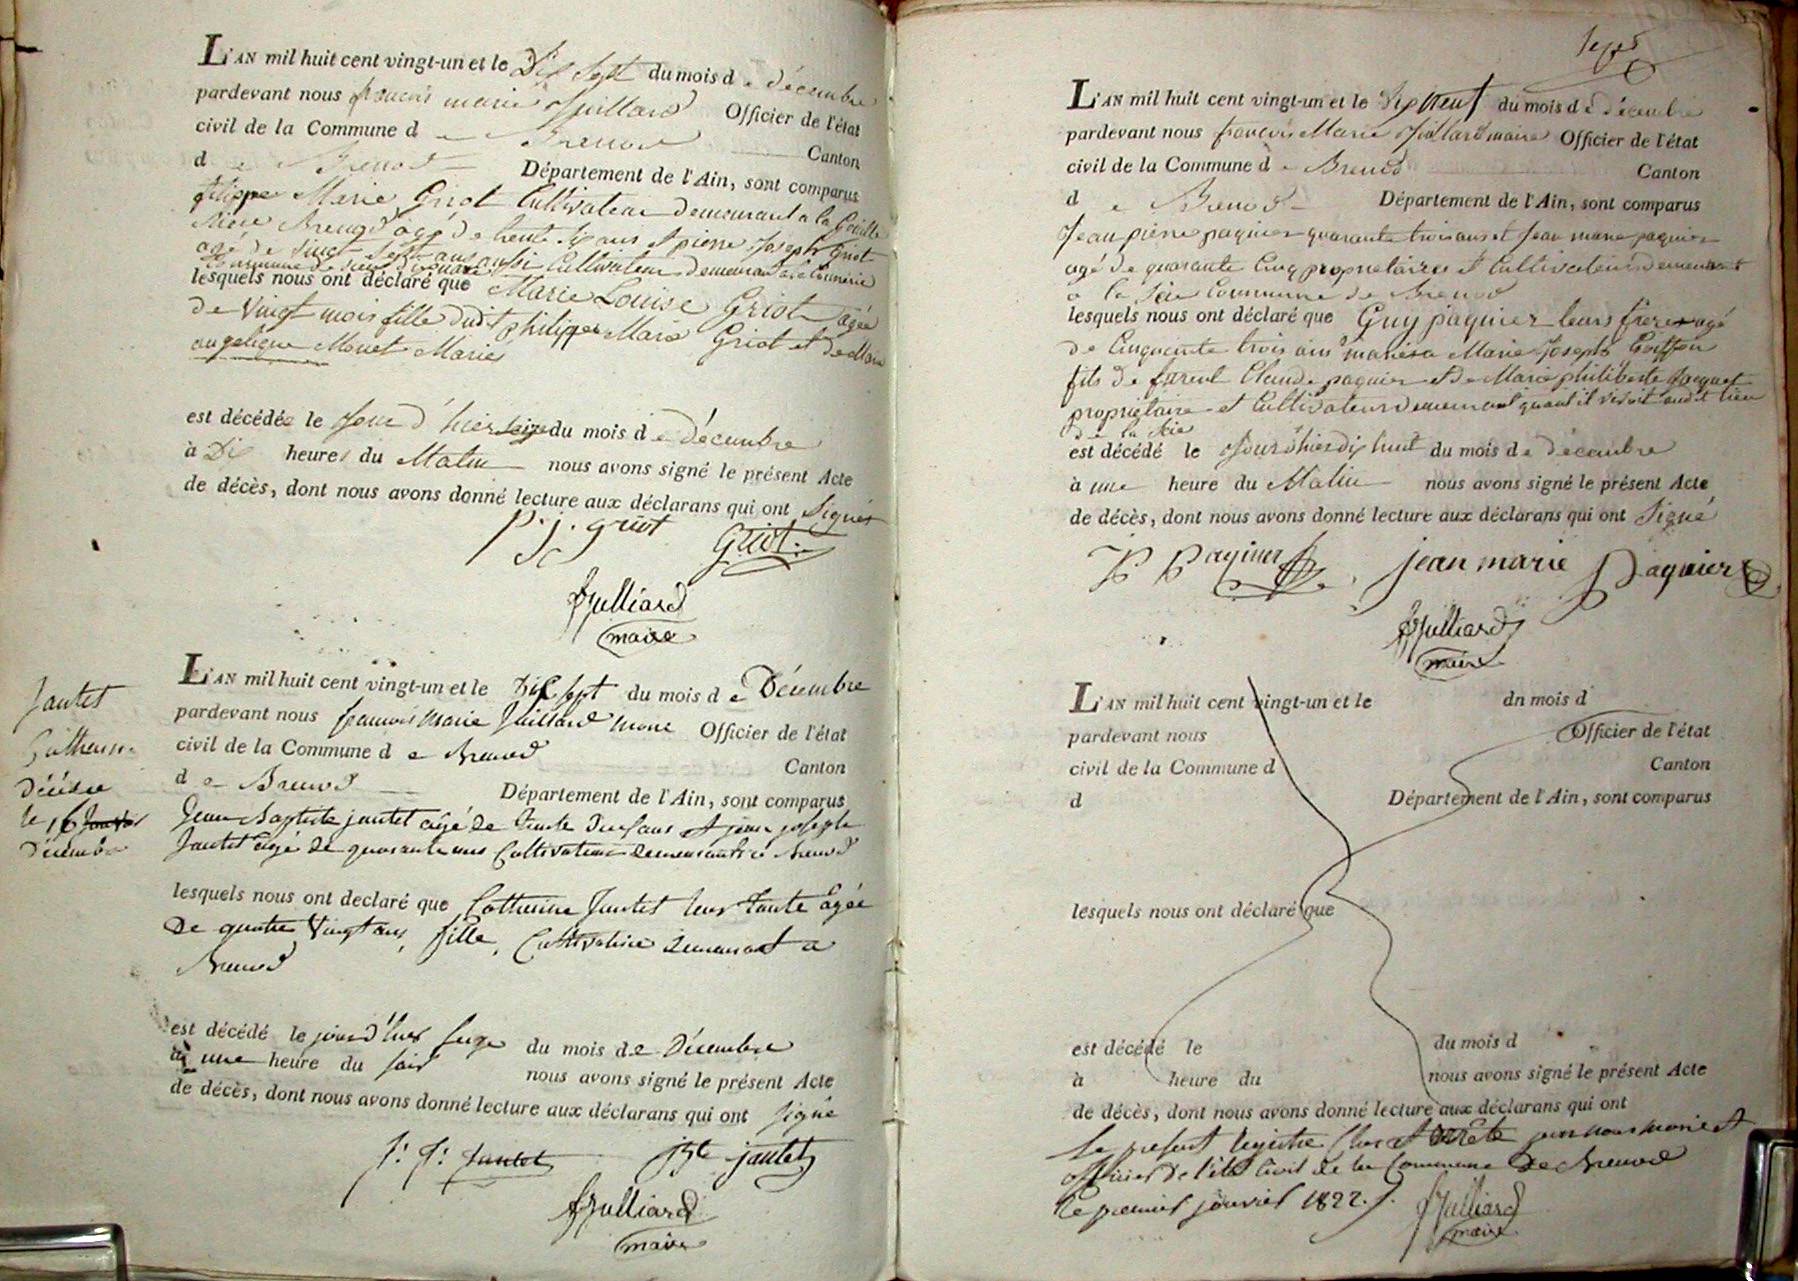 L'AN mil huit cent vingt-un et le Dix Sept du mois de décembre
pardevant nous francois marie Juillard Officier de l'état
civil de la Commune de Brenod Canton
de Brenod Département de l'Ain, sont comparus
filippe Marie Griot Cultivateur demeurant a la
Brenod agé de trente Six ans et pierre Joseph Griot
agé de vingt Sept ans aussi Cultivateur demeurant
Commune de
lesquels nous ont déclaré que Marie Louise Griot agée
de vingt mois fille dudit philippe Marie Griot et de Marie
angelique Monet Mariés
est décédée le Jour d'hier seize du mois de décembre
à Dix heures du Matin nous avons signé le présent Acte
de décès, dont nous avons donné lecture aux déclarans qui ont Signés
p. j. griot Griot
Juilliard
maire
Jantet
Catherine
Décédée
le 16 Janvier
Décembre
L'AN mil huit cent vingt-un et le Dix Sept du mois de Décembre
pardevant nous francois Marie Juillard maire Officier de l'état
civil de la Commune de Brenod
Canton
de Brenod Département de l'Ain, sont comparus
Jean Baptiste jantet agé de trente ans et jean joseph
Jantet agé de quarante ans Cultivateurs demeurant a Brenod
lesquels nous ont declaré que Catherine Jantet leur tante Agée
De quatre Vingt ans, fille, Cultivatrice demeurant a
Brenod
est décédé le jour d'hier seize du mois de Décembre
à une heure du soir nous avons signé le présent Acte
de décès, dont nous avons donné lecture aux déclarans qui ont signé
J: J: Jantet Jbte jantet
Juilliard
maire
Sept
L'AN mil huit cent vingt-un et le Dix neuf du mois de décembre
pardevant nous françois Marie Juillard maire Officier de l'état
civil de la Commune de Brenod Canton
de Brenod Département de l'Ain, sont comparus
Jean pierre paquier quarante trois ans et Jean marie paquier
agé de quarante Cinq proprietaires et Cultivateurs demeurant
a la Scie Commune de Brenod
lesquels nous ont déclaré que Guy paquier leurs frere agé
de Cinquante trois ans mariés a Marie Joseph Goiffon
fils de fureul Claude paquier et de Marie philiberte Jacquet
propriétaire et Cultivateur demeurant quant il vivoit audit lieu
de la Scie
est décédé le Jour d'hier dix huit du mois de décembre
à une heure du Matin nous avons signé le présent Acte
de décès, dont nous avons donné lecture aux déclarans qui ont Signé
JP Paquier jean marie Paquier
Juilliard
maire
L'AN mil huit cent vingt-un et le dn mois d
pardevant nous Officier de l'état
civil de la Commune d Canton
d Département de l'Ain, sont comparus
lesquels nous ont déclaré que
est décédé le du mois d
à heure du nous avons signé le présent Acte
de décès, dont nous avons donné lecture aux déclarans qui ont
Le present registre Clos et arrete par nous maire et
officier de l'état Civil de la Commune de Brenod
le premier janvier 1822.
Juilliard
maire